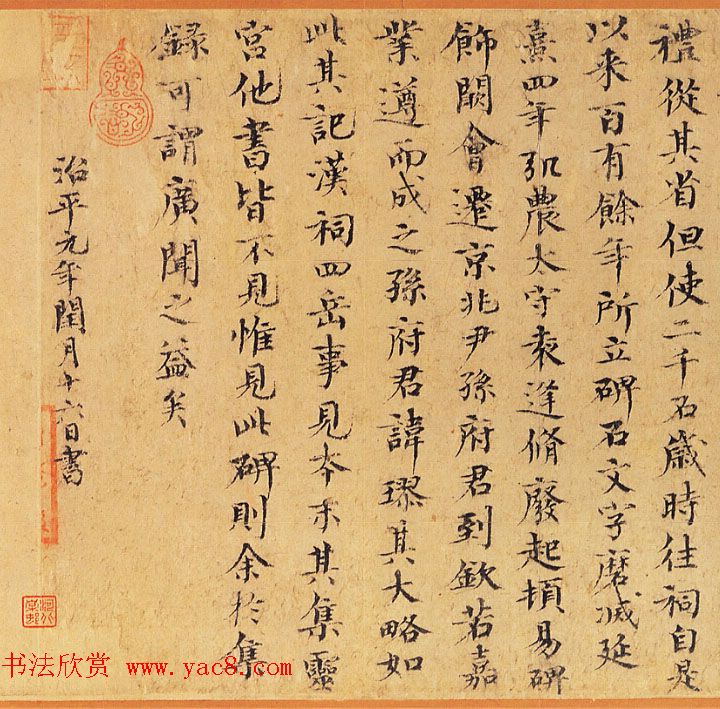 禮從其省但使二千石歲時往祠自是
以来百有餘年所立碑石文字磨滅延
熹四年弘農太守袁逢脩廢起頓易碑
飾闕會遷京兆尹孫府君到欽若嘉
業遵而成之孫府君諱璆其大略如
此其記漢祠四岳事見本末其集靈
宮他書皆不見惟見此碑則余於集
録可謂廣聞之益矣
治平元年閏月十六日書
书法欣赏 www.yac8.com